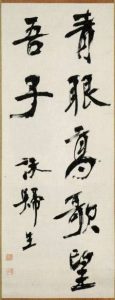 青眼高歌望
吾子
歸生